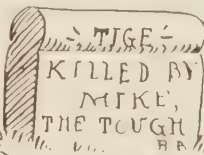 TIGE
KILLED BY
MIKE,
THE TOUGH
BA